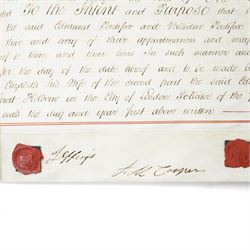 To the Intent and Purpose that
the said Edmund Pontifex and William Pontifex
than and every of their appurtenances and
of them and their heirs in such manner and
for the day of the date hereof and to be made
Elizabeth his Wife of the second part the said
Court Holborn in the City of London Solicitor of the
said the day and year first above written
Jefferys
Cooper